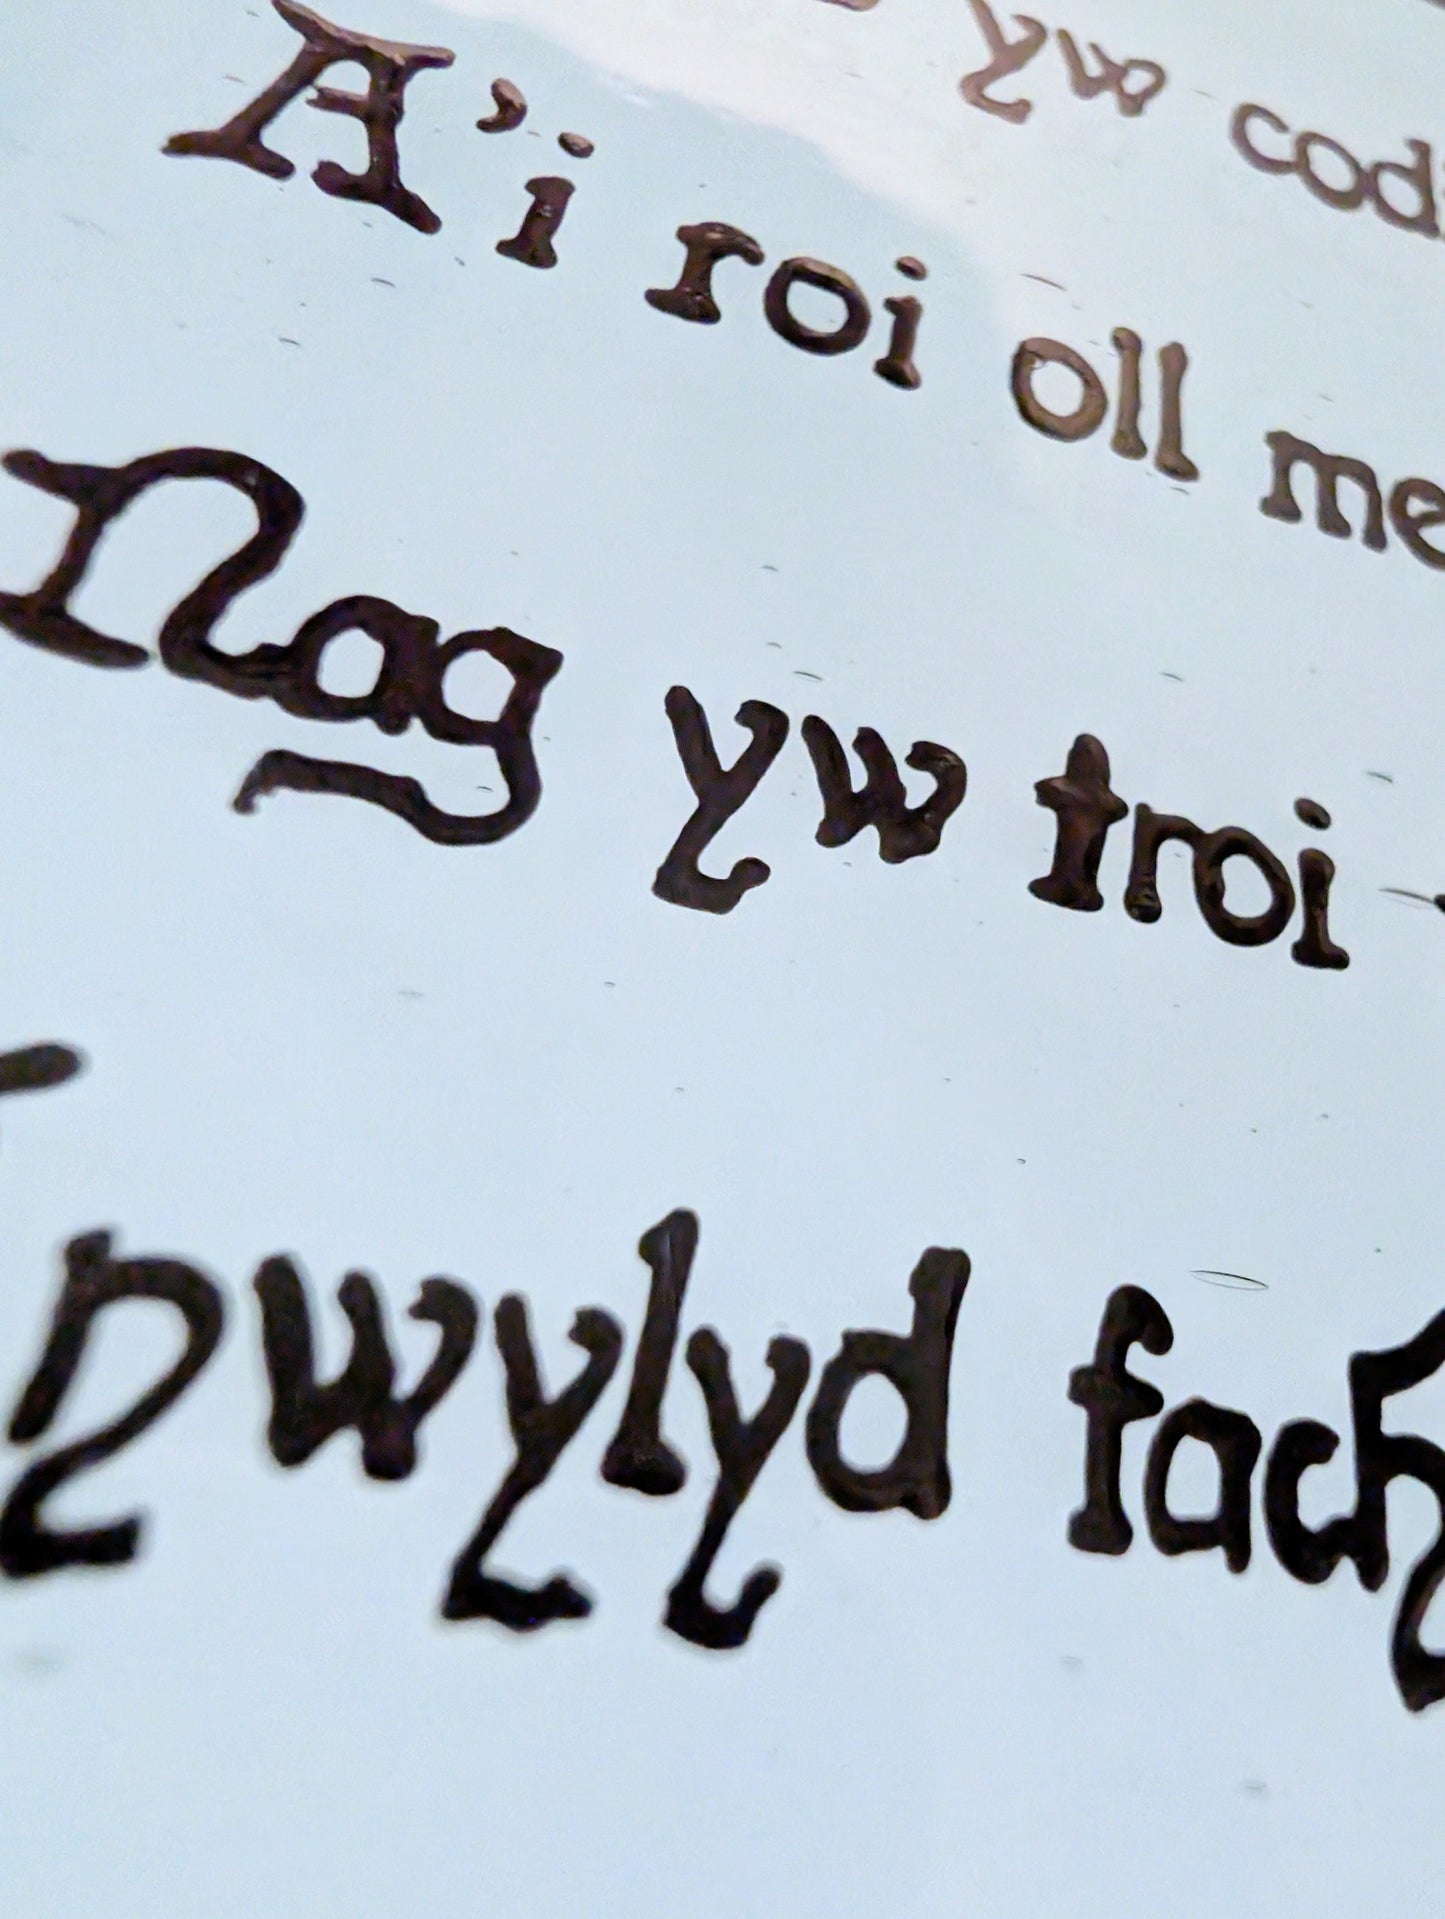 yw cod
A'i roi oll me
Nag yw troi -
Pwylyd fach